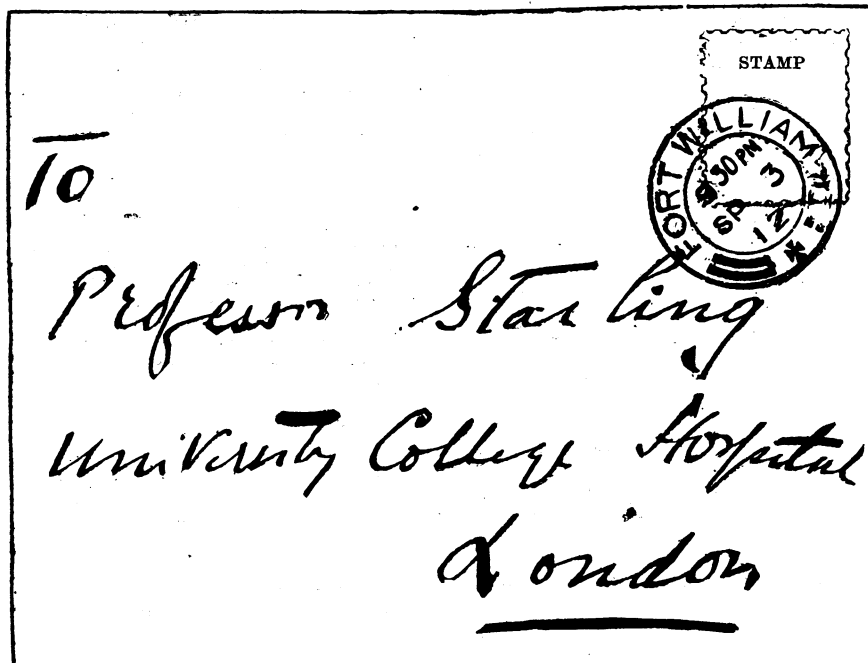 STAMP
FORT WILLIAM
30 PM
SP 3
12
To
Professor Starling
University College Hospital
London